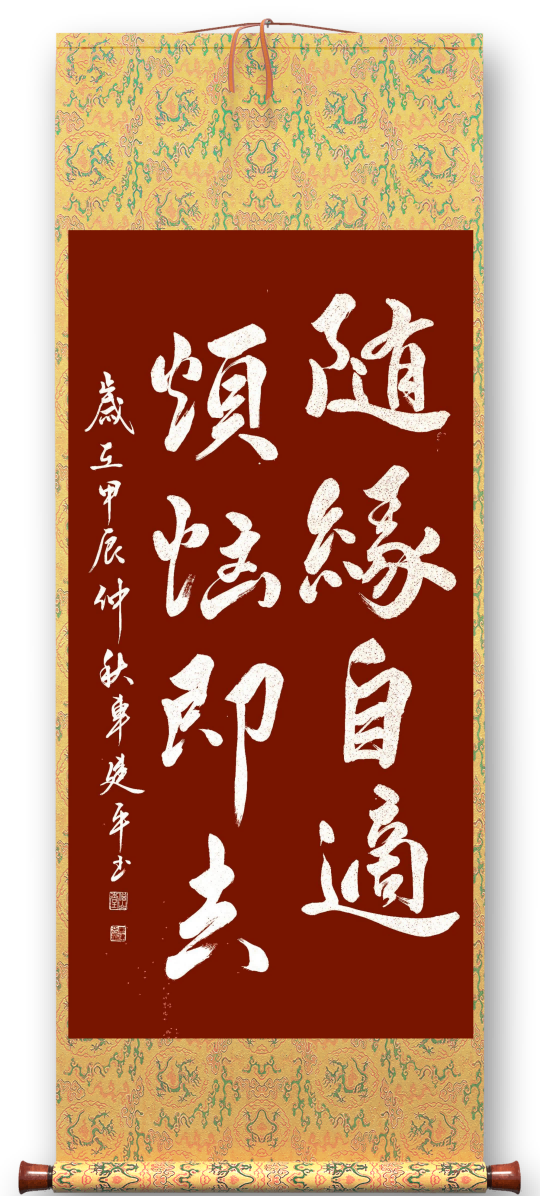 随緣自適
煩惱即去
歲在甲辰仲秋車建平书